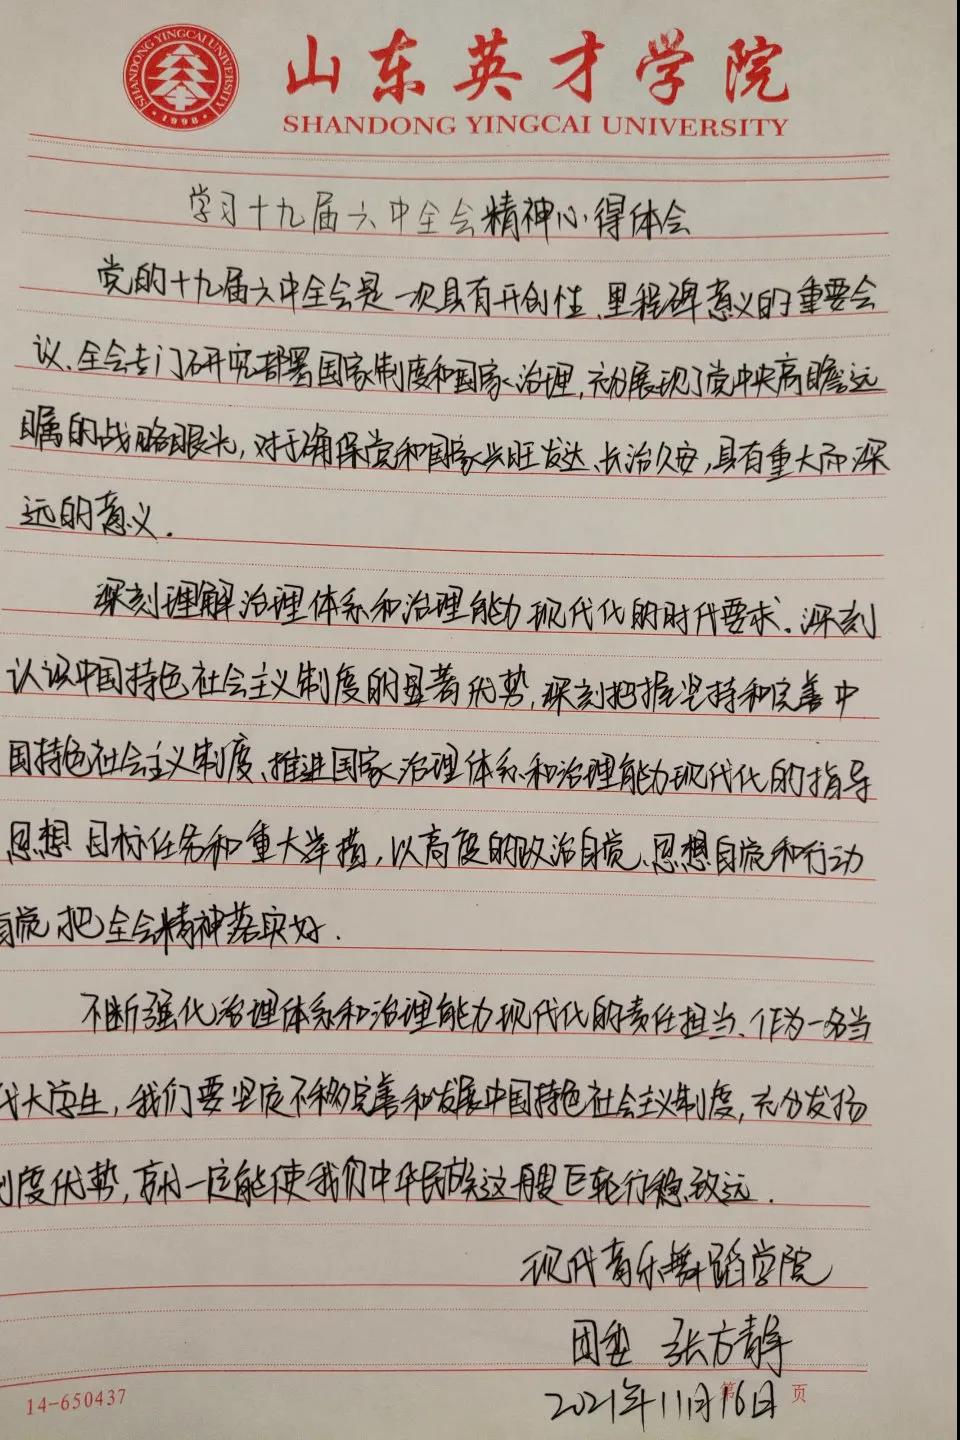 SHANDONG YINGCAI UNIVERSITY
1998
山东英才学院
SHANDONG YINGCAI UNIVERSITY
学习十九届六中全会精神心得体会
党的十九届六中全会是一次具有开创性、里程碑意义的重要会
议、全会专门研究部署国家制度和国家治理,充分展现了党中央高瞻远
瞩的战略眼光,对于确保党和国家兴旺发达、长治久安,具有重大而深
远的意义.
深刻理解治理体系和治理能力现代化的时代要求、深刻
认识中国特色社会主义制度的显著优势,深刻把握坚持和完善中
国特色社会主义制度、推进国家治理体系和治理能力现代化的指导
思想 目标任务和重大举措,以高度的政治自觉、思想自觉和行动
自觉 把全会精神落实好.
不断强化治理体系和治理能力现代化的责任担当、作为一名当
代大学生,我们要坚定不移完善和发展中国特色社会主义制度,充分发扬
制度优势,就一定能使我们中华民族这艘巨轮行稳致远.
现代音乐舞蹈学院
团委 张方静
2021年11月16日
第 页
14-650437